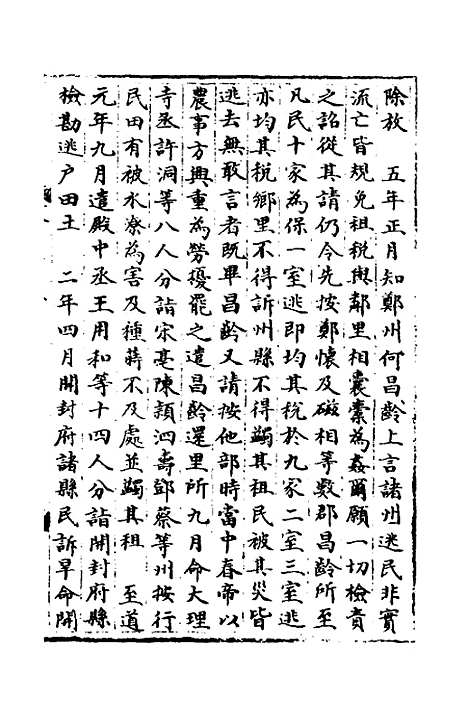 除放　五年正月知鄭州何昌齡上言諸州逃民非實
流亡皆規免租稅與鄰里相囊橐為姦爾願一切檢責
之詔從其請仍令先按鄭懷及磁相等數郡昌齡所至
凡民十家為保一室逃即均其稅於九家二室三室逃
亦均其稅鄉里不得訴州縣不得蠲其租民被其災皆
逃去無敢言者既畢昌齡又請按他部時當中春帝以
農事方興重為勞擾罷之遣昌齡還里所九月命大理
寺丞許洞等八人分詣宋亳陳潁泗壽鄧蔡等州按行
民田有被水潦為害及種蒔不及處並蠲其租　至道
元年九月遣殿中丞王用和等十四人分詣開封府縣
檢勘逃戶田土　二年四月開封府諸縣民訴旱命開